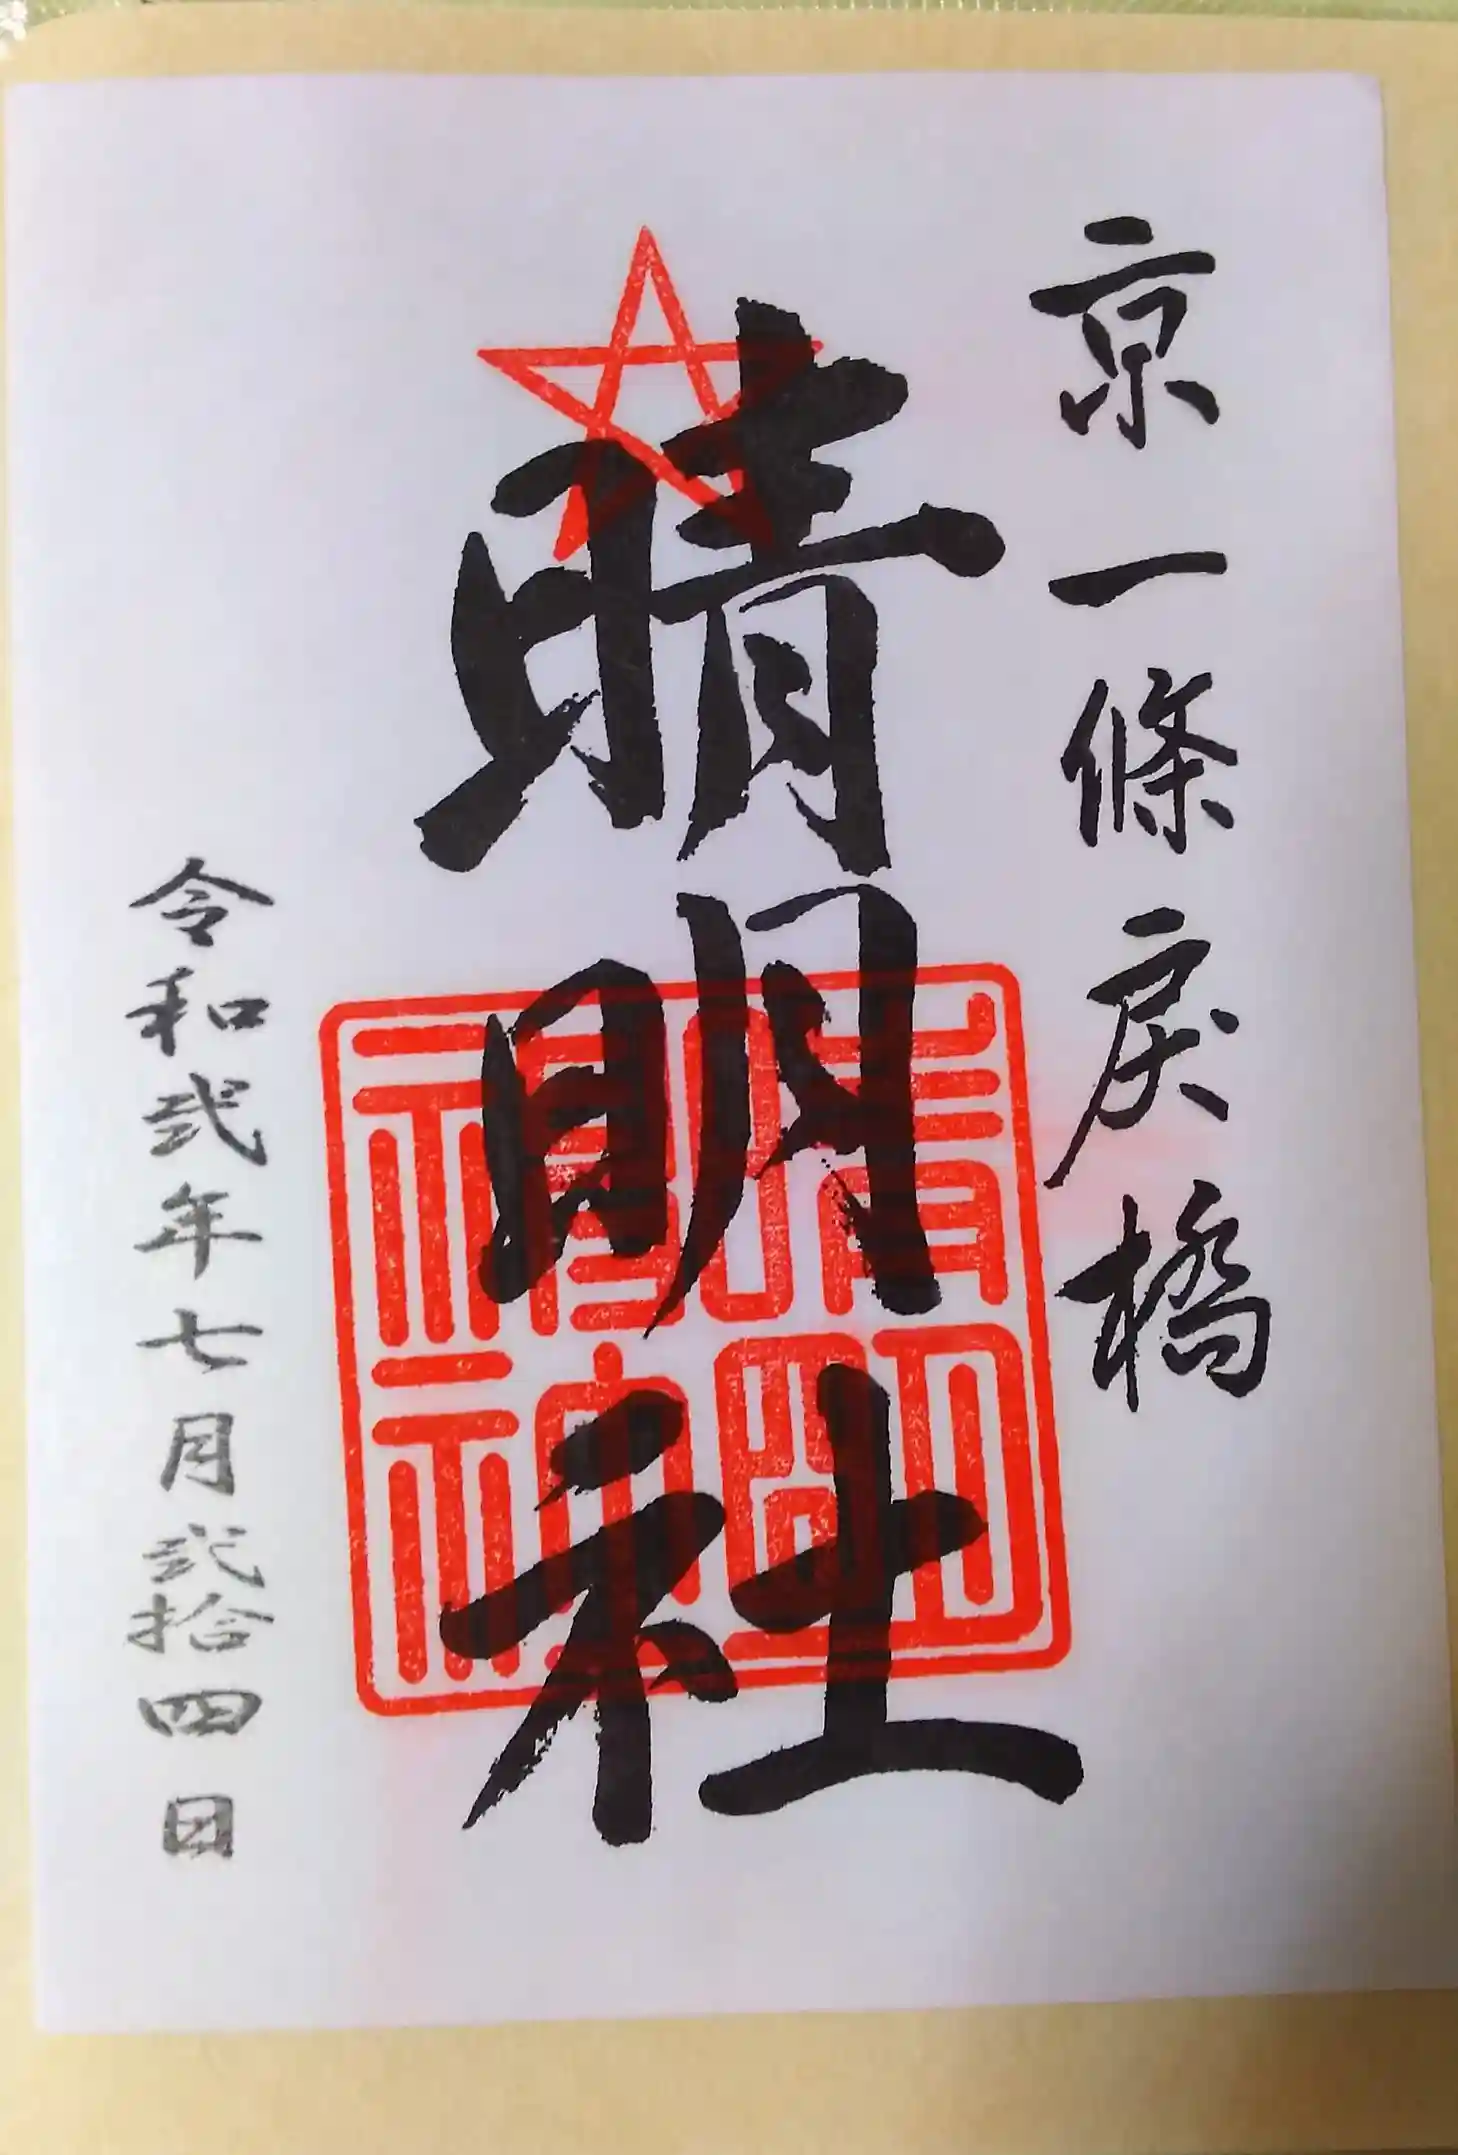 京一條戻橋
晴明社
晴明
桔神
令和弐年七月弐拾四日